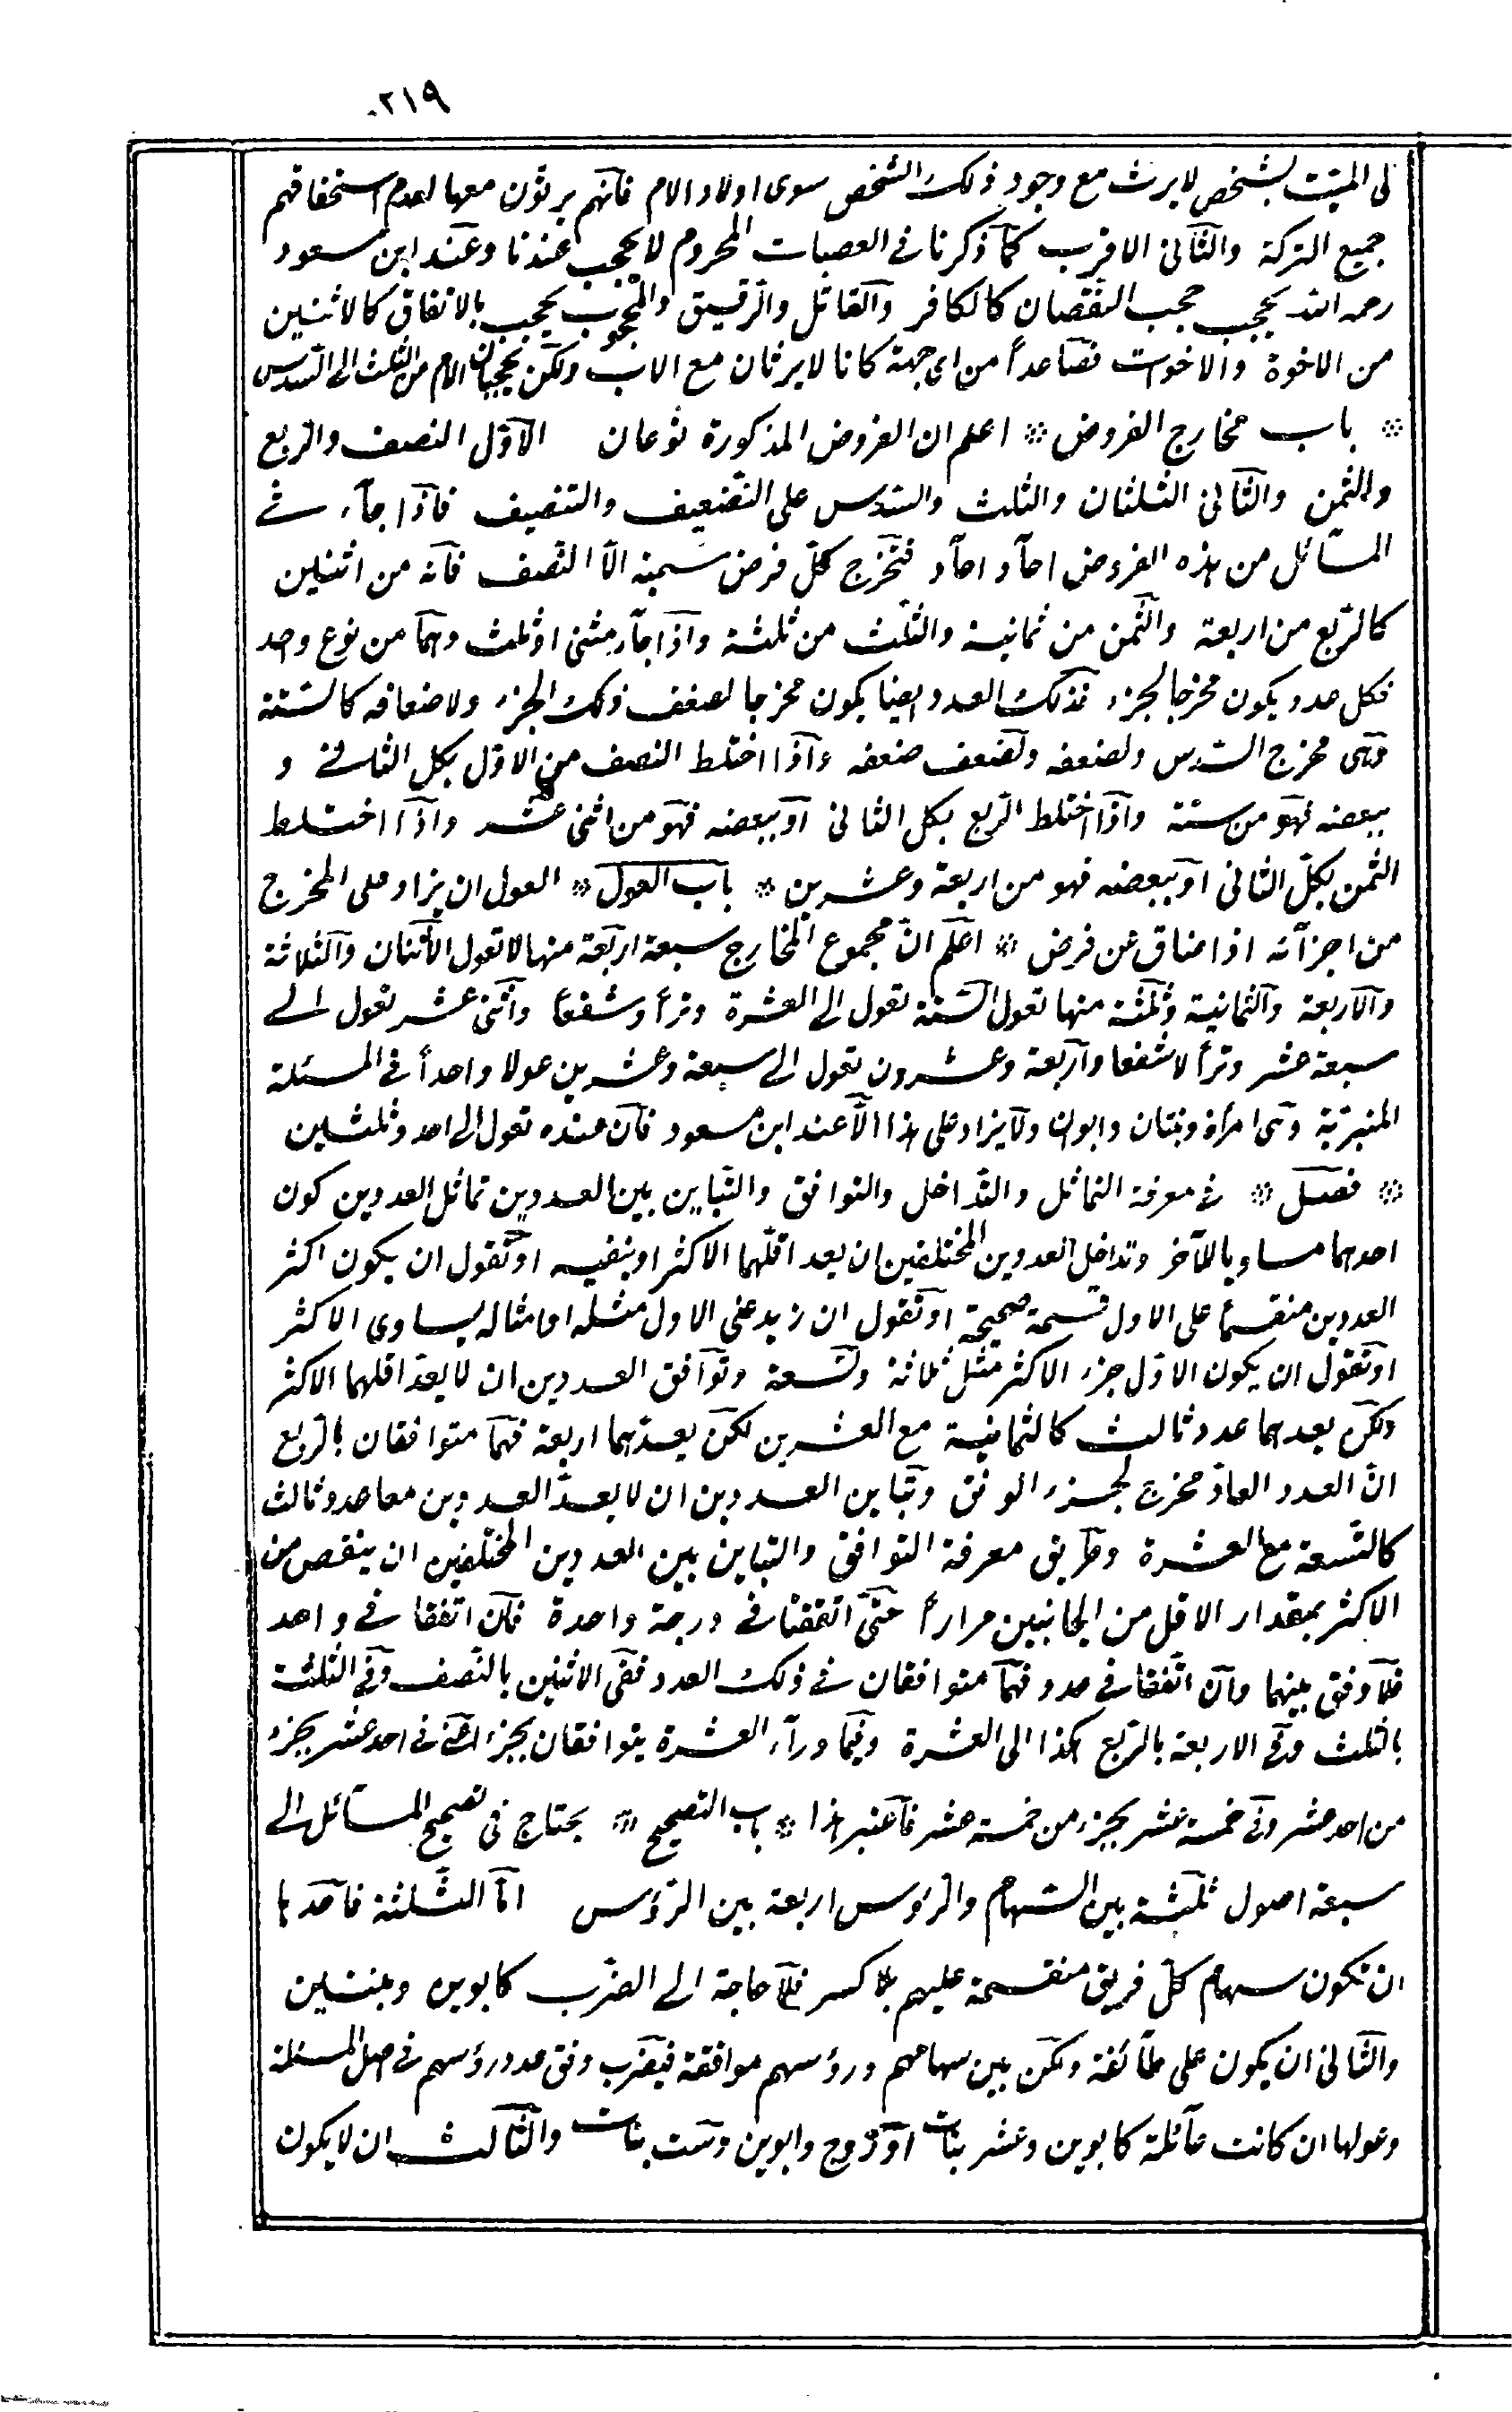 ٢١٩
لى الميت بشخص لا يرث مع وجود ذلك الشخص سوى اولاد الام فانهم يرثون معها لعدم استحقاقهم
جميع التركة والثانى الاقرب كما ذكرنا فى العصبات المحروم لا يحجب عندنا وعند ابن مسعود
رحمه الله يحجب حجب النقصان كالكافر والقاتل والرقيق والمحجوب يحجب بالاتفاق كالاثنين
من الاخوة والاخوات فصاعداً من اى جهة كانا لا يرثان مع الاب ولكن يحجبان الام من الثلث الى السدس
* باب مخارج الفروض * اعلم ان الفروض المذكورة نوعان الاول النصف والربع
والثمن والثانى الثلثان والثلث والسدس على التضعيف والتنصيف فاذا جآء فى
المسائل من هذه الفروض احآد احآد فمخرج كل فرض سميه الا النصف فانه من اثنين
كالربع من اربعة والثمن من ثمانية والثلث من ثلثة واذا جآء مثنى او ثلث وهما من نوع واحد
فكل عدد يكون مخرجا لجزء فذلك العدد ايضا يكون مخرجا لضعف ذلك الجزء ولاضعافه كالستة
وهى مخرج السدس ولضعفه ولضعف ضعفه واذا اختلط النصف من الاول بكل الثانى و
ببعضه فهو من ستة واذا اختلط الربع بكل الثانى او ببعضه فهو من اثنى عشر واذا اختلط
الثمن بكل الثانى او ببعضه فهو من اربعة وعشرين * باب العول * العول ان يزاد على المخرج
من اجزآئه اذا ضاق عن فرض * اعلم ان مجموع المخارج سبعة اربعة منها لا تعول الاثنان والثلاثة
والاربعة والثمانية وثلثة منها تعول الستة تعول الى العشرة وتراً وشفعاً واثنى عشر تعول الى
سبعة عشر وتراً لا شفعا واربعة وعشرون تعول الى سبعة وعشرين عولا واحداً فى المسئلة
المنبرية وهى امرأة وبنتان وابوان ولا يزاد على هذا الا عند ابن مسعود فان عنده تعول الى احد وثلثين
* فصل * فى معرفة التماثل والتداخل والتوافق والتباين بين العددين تماثل العددين كون
احدهما مساويا للآخر وتداخل العددين المختلفين ان يعد اقلهما الاكثر او ينفيه او نقول ان يكون اكثر
العددين منقسماً على الاول قسمة صحيحة او نقول ان زيد على الاول مثله او امثاله يساوى الاكثر
او نقول ان يكون الاول جزء الاكثر مثل ثلاثة وتسعة وتوافق العددين ان لا يعد اقلهما الاكثر
ولكن يعدهما عدد ثالث كالثمانية مع العشرين لكن يعدهما اربعة فهما متوافقان بالربع
ان العدد العاد مخرج لجزء الوفق وتباين العددين ان لا يعد العددين معا عدد ثالث
كالتسعة مع العشرة وطريق معرفة التوافق والتباين بين العددين المختلفين ان ينقص من
الاكثر بمقدار الاقل من الجانبين مراراً حتى اتفقتا فى درجة واحدة فان اتفقا فى واحد
فلا وفق بينهما وان اتفقا فى عدد فهما متوافقان فى ذلك العدد ففى الاثنين بالنصف وفى الثلثة
بالثلث وفى الاربعة بالربع هكذا الى العشرة وفيما ورآء العشرة يتوافقان بجزء اعنى فى احد عشر بجزء
من احد عشر وفى خمسة عشر بجزء من خمسة عشر فاعتبر هذا * باب التصحيح * يحتاج فى تصحيح المسائل الى
سبعة اصول ثلثة بين السهام والرؤس اربعة بين الرؤس اما الثلثة فاحدها
ان تكون سهام كل فريق منقسمة عليهم بلا كسر فلا حاجة الى الضرب كابوين وبنتين
والثانى ان يكون على طآئفة ولكن بين سهامهم ورؤسهم موافقة فيضرب وفق عدد رؤسهم فى اصل المسئلة
وعولها ان كانت عآئلة كابوين وعشر بنات او زوج وابوين وست بنات والثالث ان لا يكون